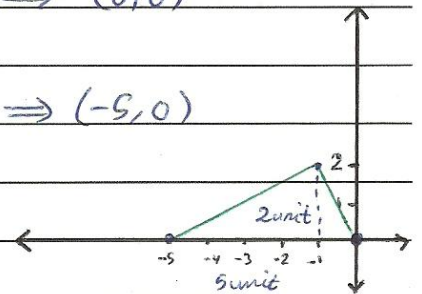 ⟹ (0,0)
⟹ (-5,0)
2
1
2unit
-5 -4 -3 -2 -1
5unit